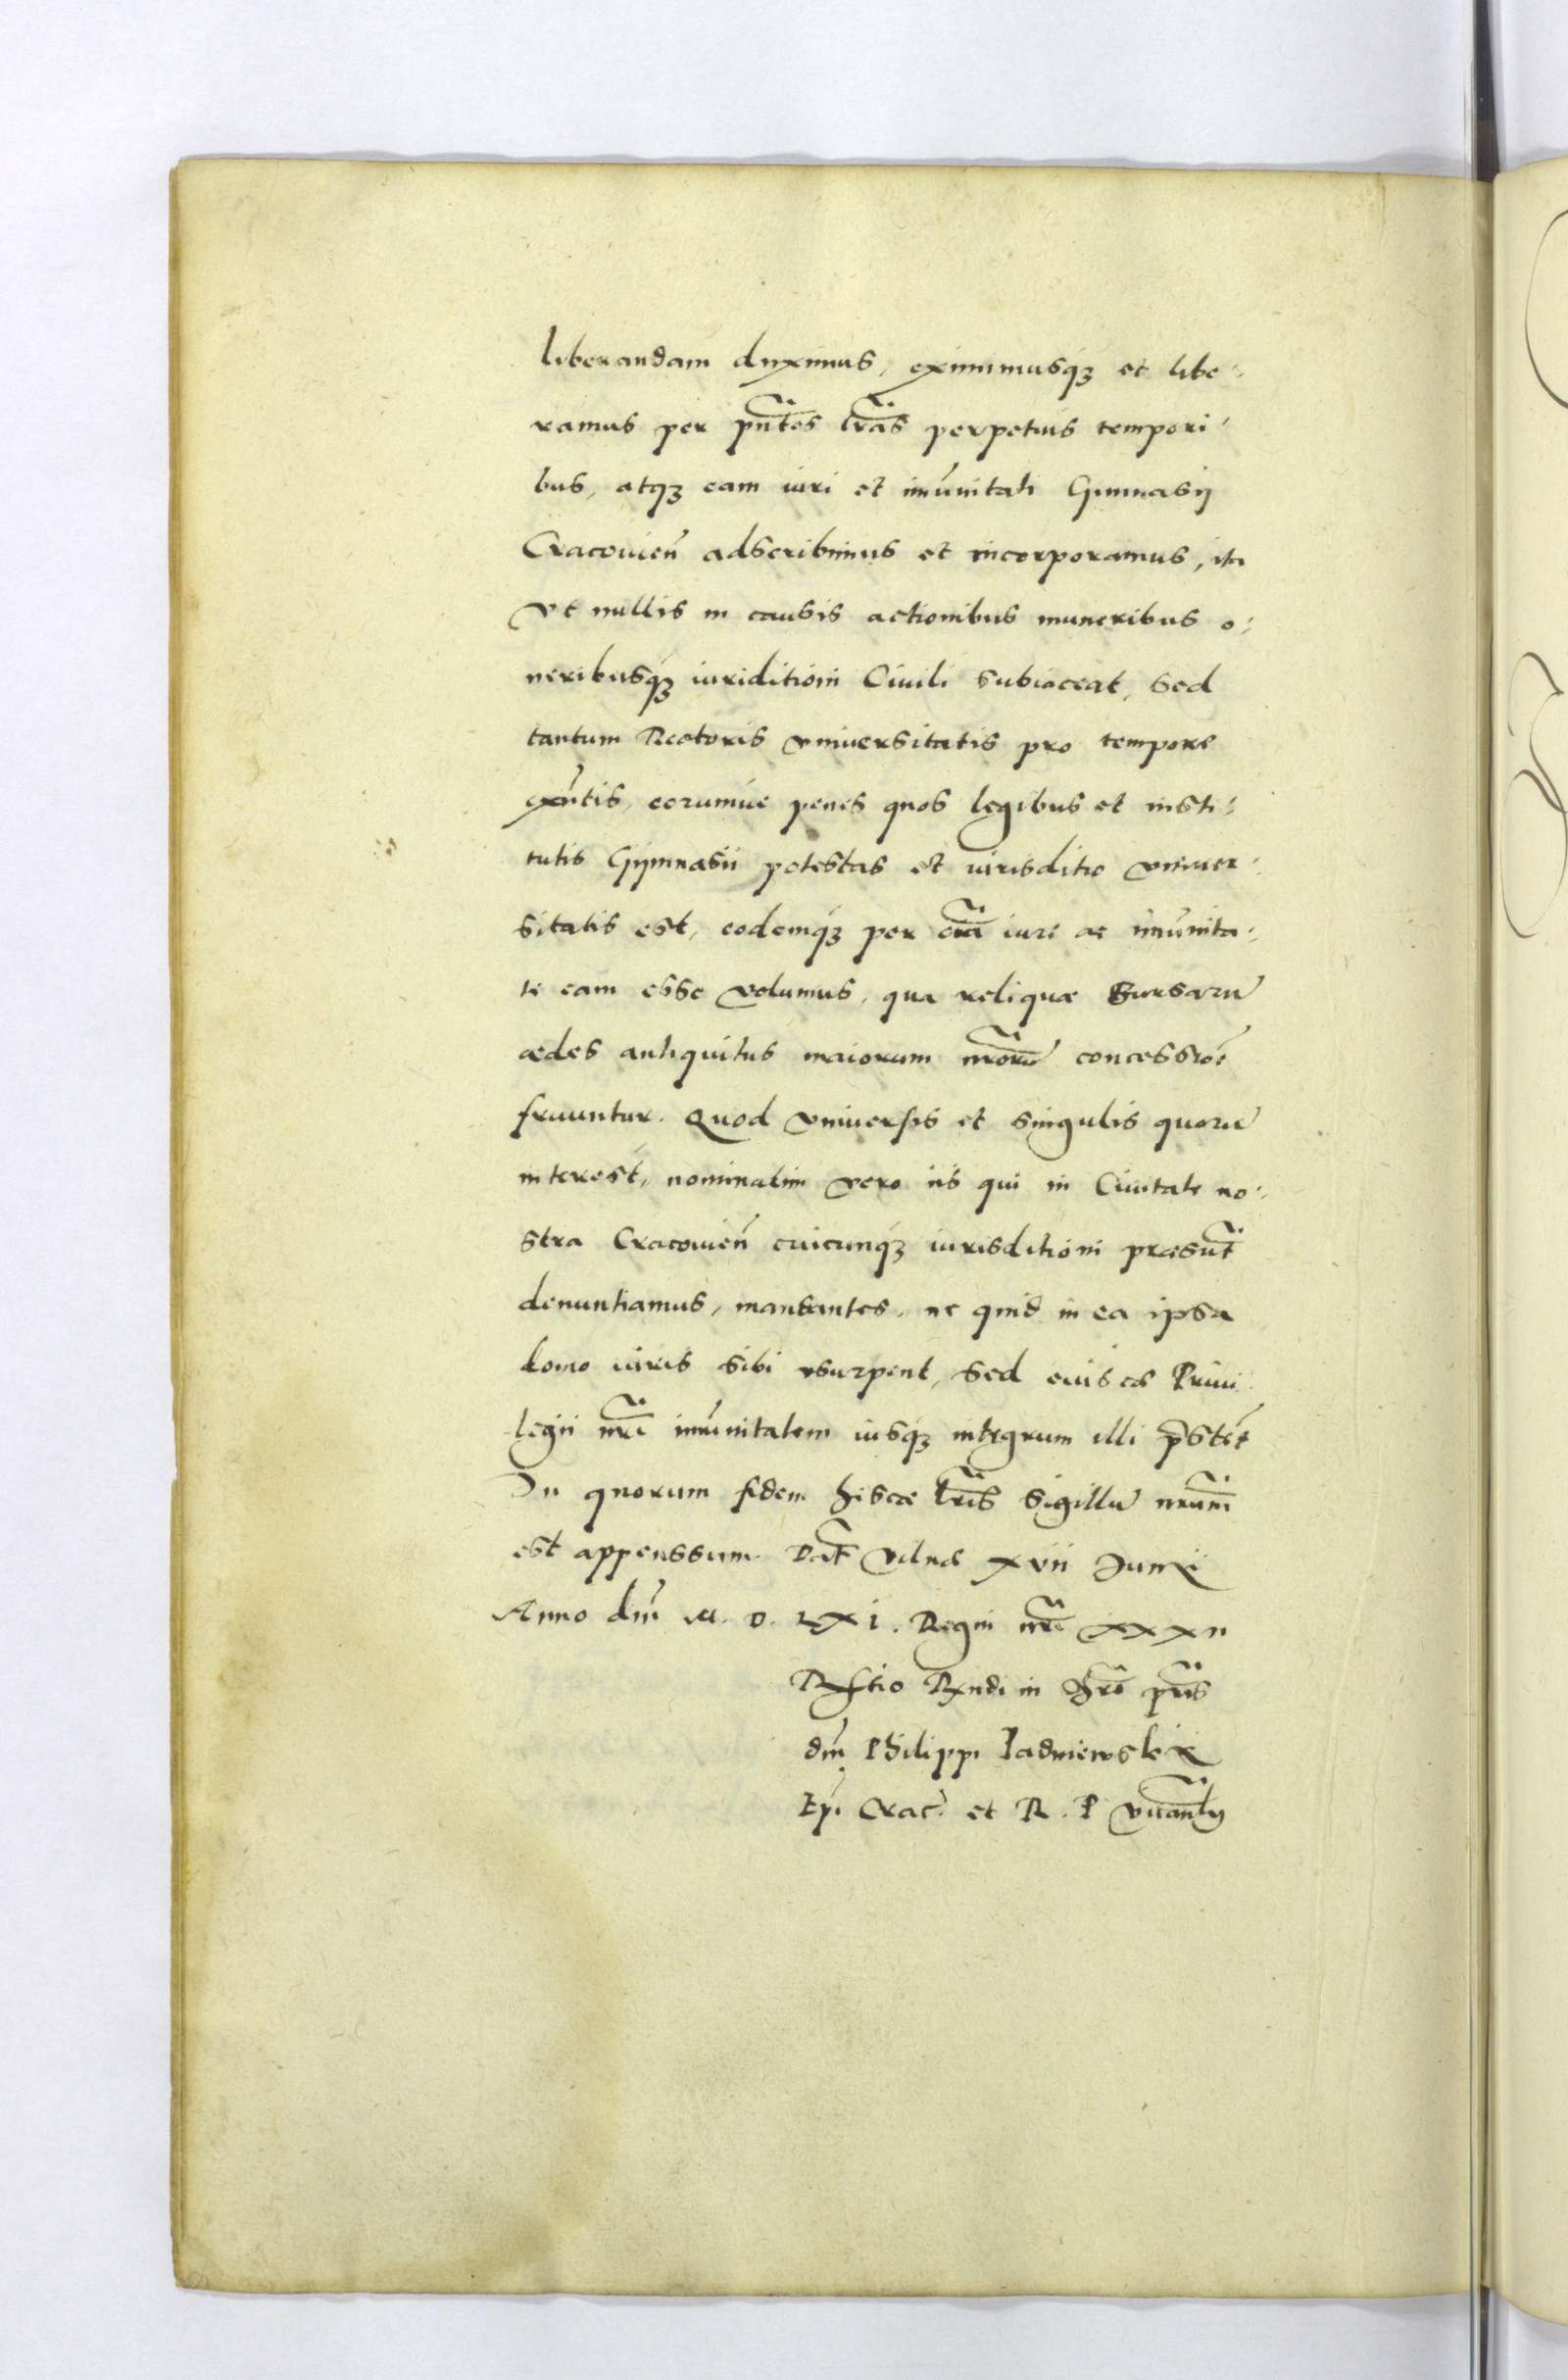 liberandam duximus, eximimusq́ꝫ et libe:
ramus per pñtes lr̃as perpetuis tempori:
bus, atqꝫ eam iuri et im̃unitati Gimnasij
Cracouien̄ adscribimus et incorporamus, ita
vt nullis in causis actionibus muneribus o:
neribusq́ꝫ iuriditioni Ciuili subiaceat, sed
tantum Rectoris vniuersitatis pro tempore
exñtis, eorumúe penes quos legibus et insti:
tutis Gymnasii potestas et iurisditio vniuer:
sitatis est, eodemq́ꝫ per oĩa iure ac im̃unita:
te eam esse volumus, qua reliquæ Bursarũ
ædes antiquitus maiorum nr̃orũ concessiõe
fruuntur. Quod vniuersis et singulis quorũ
interest, nominatim vero iis qui in Ciuitate no:
stra Cracouien̄ cuicunq́ꝫ iurisditioni præsũt
denuntiamus, mandantes, ne quid in ea ipsa
domo iuris sibi vsurpent, sed eius cæ Priui
legii nr̃i im̃unitatem iusq́ꝫ integrum illi p̃stẽt
In quorum fidem hisce lr̃is sigillũ nr̃um
est appenssum. Dat̃ vilnæ xvii Junii
Anno dm̃ M. D. LXI. Regni nr̃i xxxii
Rel̃tio Rxndi in Chrõ pr̃is
dm̃ Philippi Padniewskị
Ep̃i Crac̃. et R. P vicanlȳ